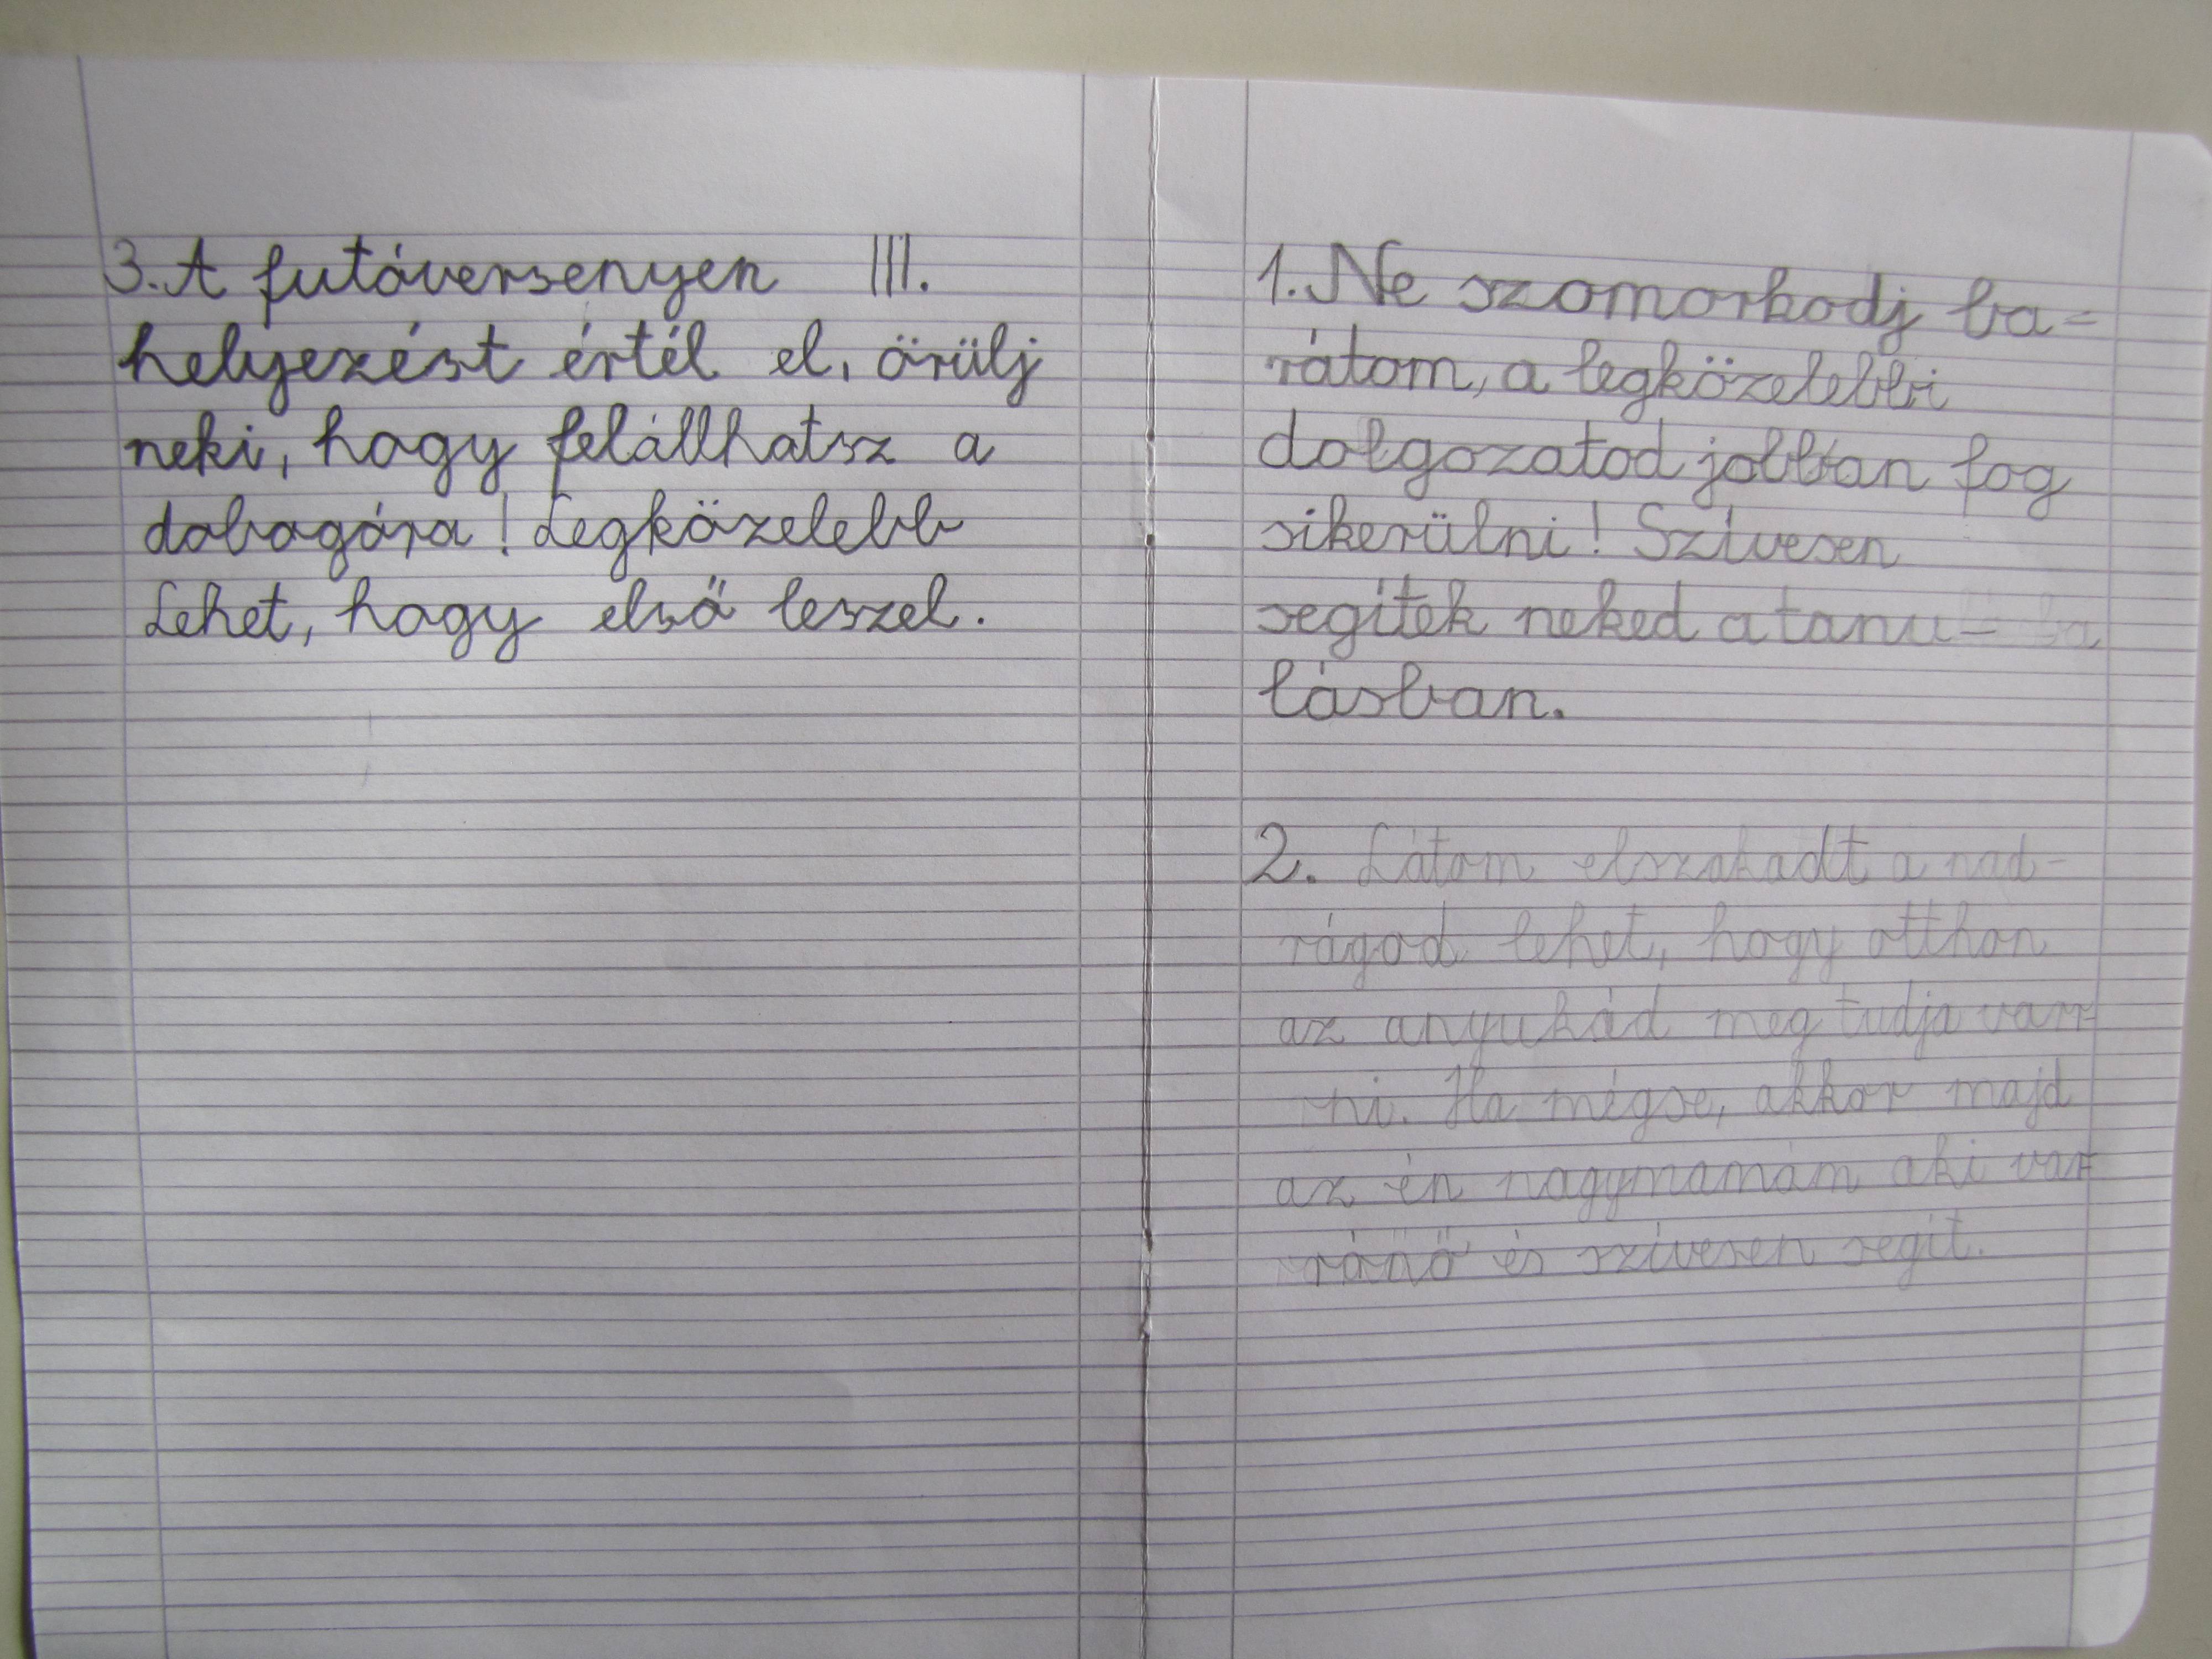 3. A futóversenyen III.
helyezést értél el, örülj
neki, hogy felállhatsz a
dobogóra! Legközelebb
Lehet, hogy első leszel.
1. Ne szomorkodj ba=
rátom, a legközelebbi
dolgozatod jobban fog
sikerülni! Szívesen
segítek neked a tanu-
lásban.
2. Látom elszakadt a nad-
rágod lehet, hogy otthon
az anyukád meg tudja varr-
ni. Ha mégse, akkor majd
az én nagymamám aki var-
rónő és szívesen segít.